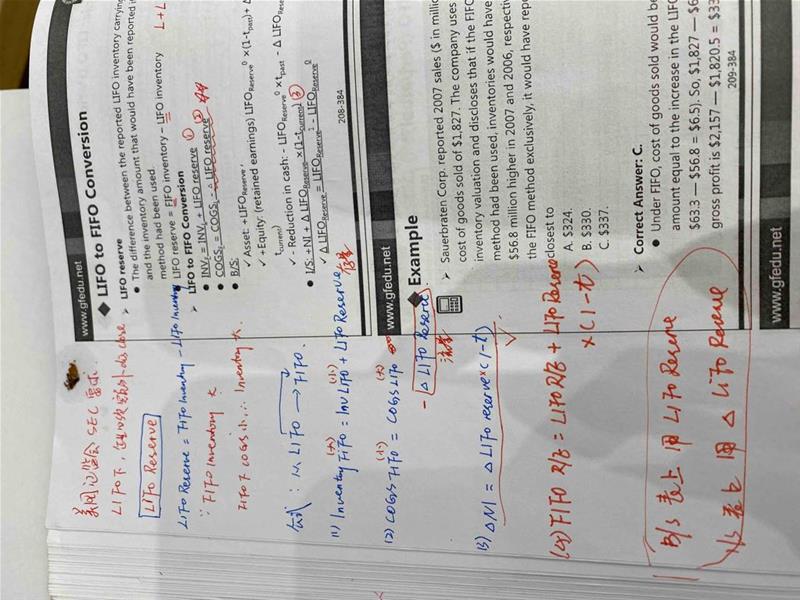 www.gfedu.net
◆ LIFO to FIFO Conversion
➢ LIFO reserve
● The difference between the reported LIFO inventory carrying
and the inventory amount that would have been reported if
method had been used.
LIFO reserve = FIFO inventory – LIFO inventory
L+L
➢ LIFO to FIFO Conversion
● INVF = INVL + LIFO reserve ①
● COGSF = COGSL - △ LIFO reserve ②
● B/S:
✓ Asset: +LIFOReserve,
✓ +Equity: (retained earnings) LIFOReserve0 ×(1-tpast)+ △
✓ - Reduction in cash: - LIFOReserve0 ×tpast - △ LIFOReserve
tcurrent)
● I/S: +NI + △ LIFOReserve ×(1-tcurrent) ③
✓ △ LIFOReserve = LIFOReserve1 - LIFOReserve0
208-384
www.gfedu.net
◆ Example
➢ Sauerbraten Corp. reported 2007 sales ($ in million
cost of goods sold of $1,827. The company uses
inventory valuation and discloses that if the FIFO
method had been used, inventories would have
$56.8 million higher in 2007 and 2006, respective
the FIFO method exclusively, it would have repor
closest to
A. $324.
B. $330.
C. $337.
➢ Correct Answer: C.
● Under FIFO, cost of goods sold would be
amount equal to the increase in the LIFO
$63.3 — $56.8 = $6.5). So, $1,827 — $6
gross profit is $2,157 — $1,820.5 = $33
209-384
www.gfedu.net
LIFO Reserve
LIFO Reserve = FIFO Inventory - LIFO Inventory
∵ FIFO Inventory 大
FIFO下 COGS小 ∴ Inventory 大
公式: 从 LIFO → FIFO
(大) (小)
(1) Inventory FIFO = Inv LIFO + LIFO Reserve
存量
(小) (大)
(2) COGS FIFO = COGS LIFO
- △ LIFO Reserve
流量
(3) △NI = △ LIFO reserve × (1-t)
(4) FIFO R/E = LIFO R/E + LIFO Reserve
× (1-t)
B/S 表上 用 LIFO Reserve
I/S 表上 用 △ LIFO Reserve